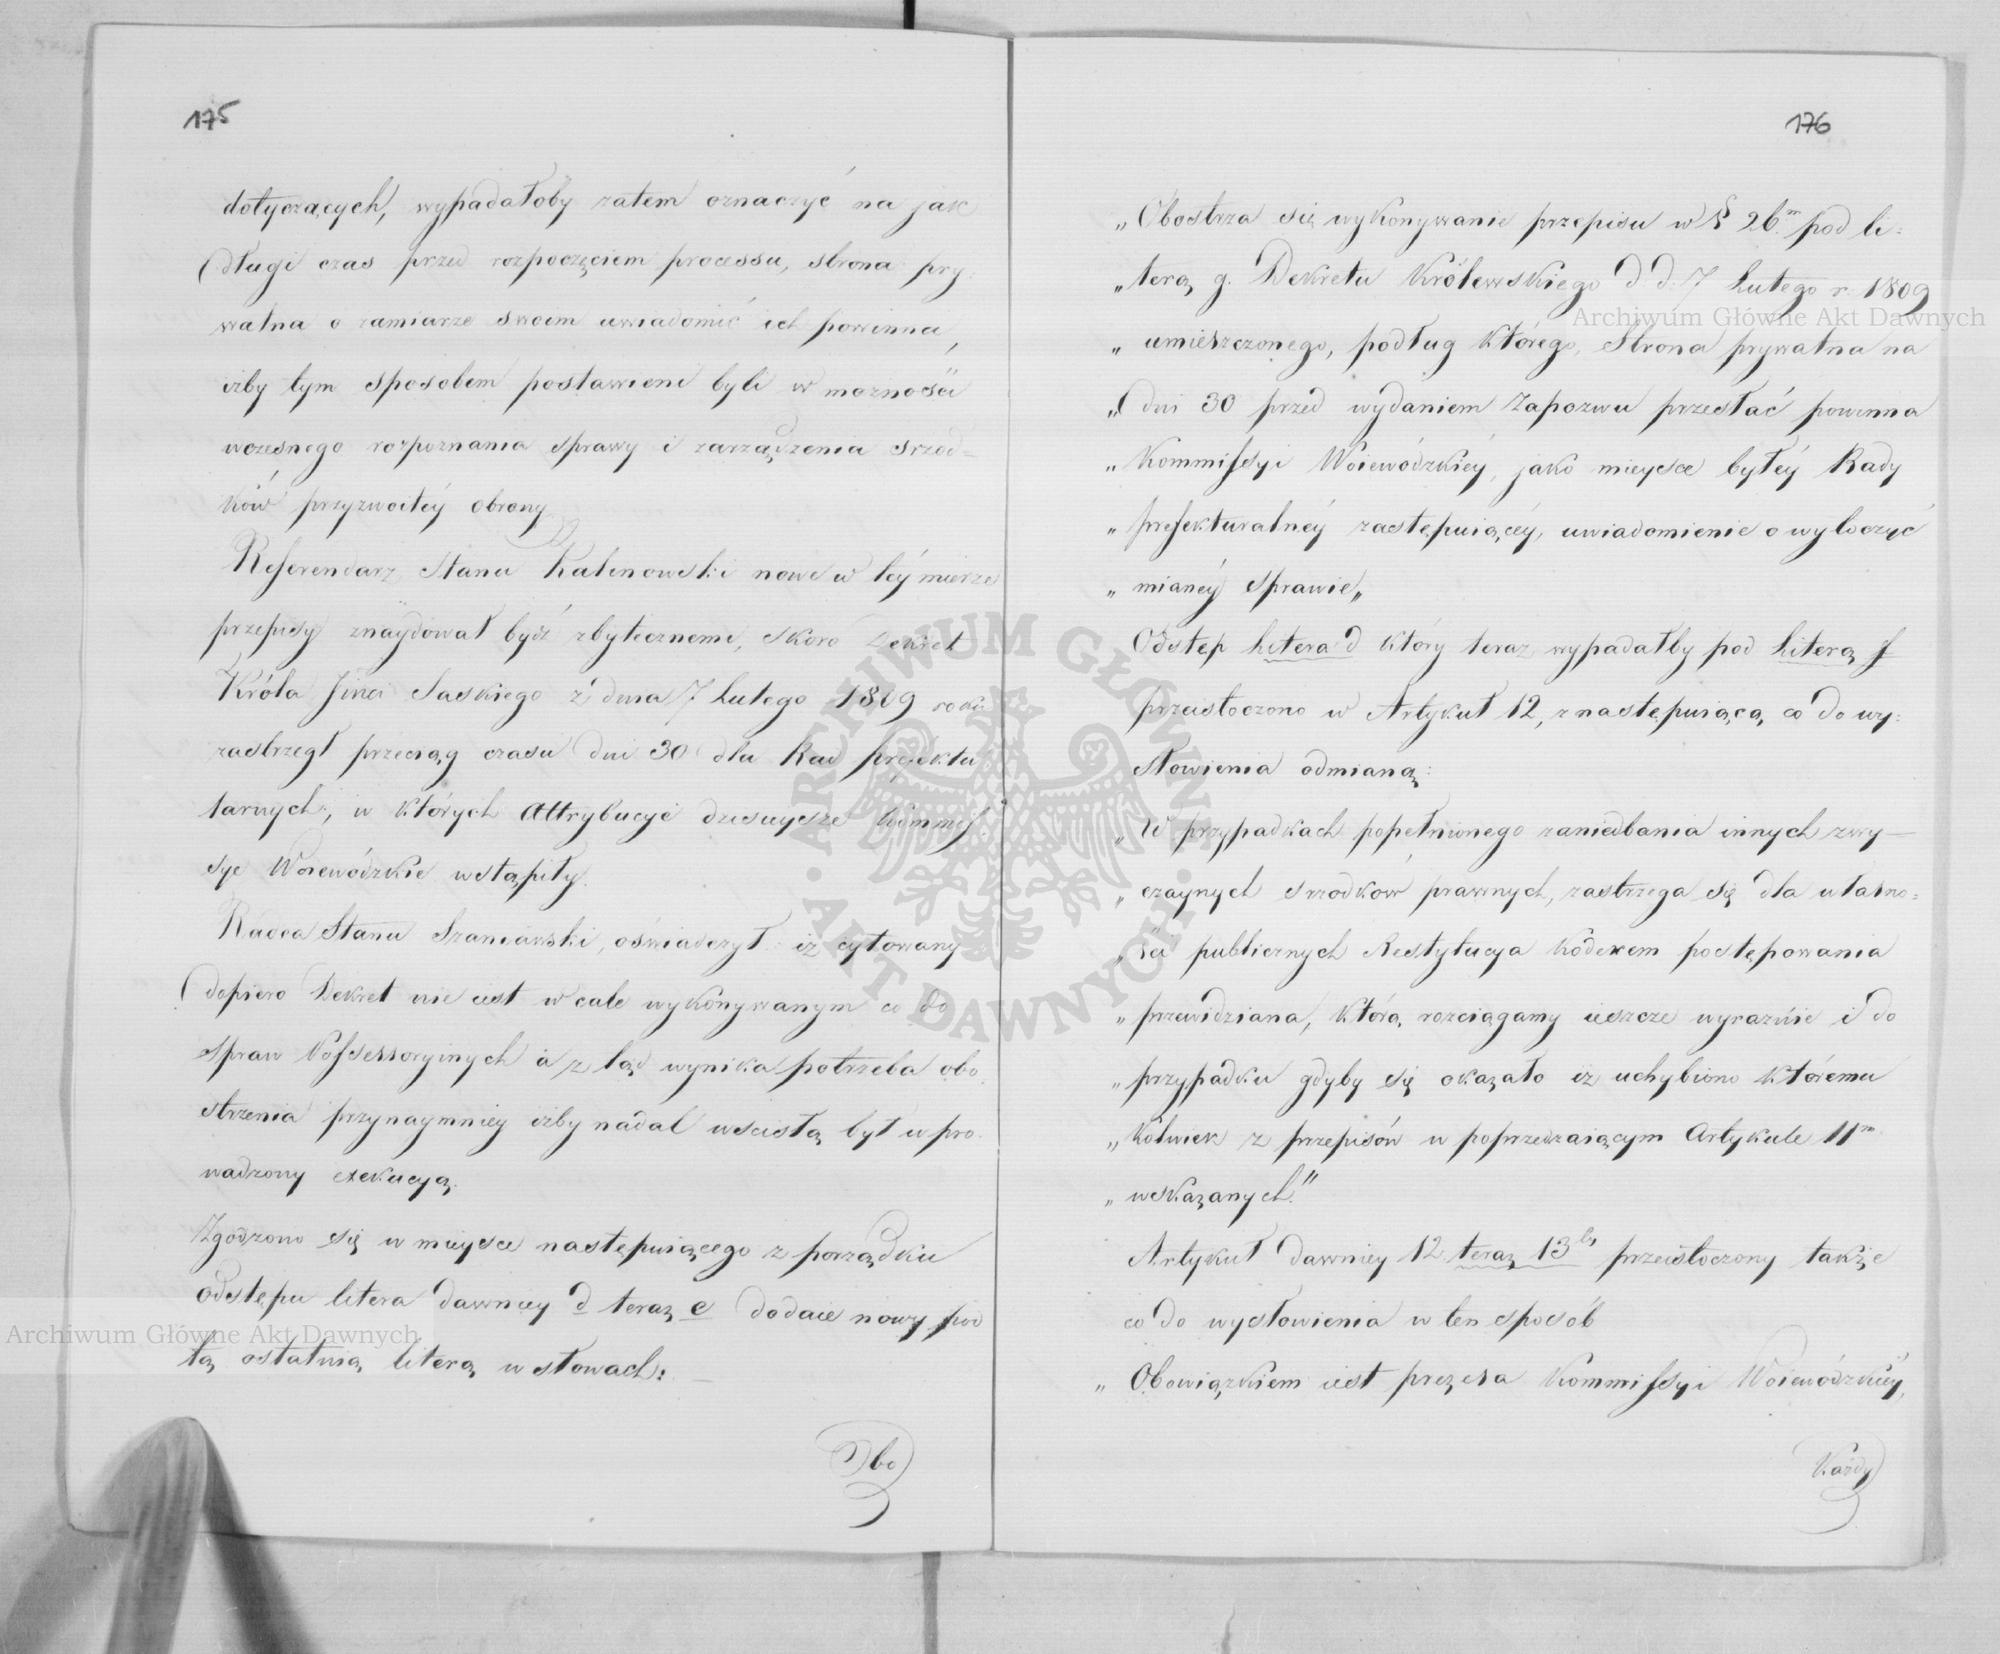 175
dotyczących, wypadałoby zatem oznaczyć na jak
długi czas przed rozpoczęciem processu, strona pry:
watna o zamiarze swoim uwiadomić ich powinna,
iżby tym sposobem postawieni byli w możności
wczesnego rozpoznania sprawy i zarządzenia srzod=
ków przyzwoitéy obrony
Referendarz Stanu Kalinowski nowe w téy mierze
przepisy znaydował bydź zbytecznemi, skoro Dekret
Króla Jmci Saskiego z dnia 7 Lutego 1809 roku
zastrzegł przeciąg czasu dni 30 dla Rad prefektu
ralnych, w których Attrybucye dzisieysze Kommis
sye Woiewódzkie wstąpiły.
Radca Stanu Szaniawski, oświadczył iż cytowany
dopiero Dekret nie iest w cale wykonywanym co do
spraw Possessoryinych a z tąd wynika potrzeba obo
strzenia przynaymniey iżby nadal w scisłą był w pro
wadzony exekucyą.
Zgodzono się w mieysce następuiącego z porządku
odstępu litera dawniey d teraz e dodaie nowy pod
tą ostatnią literą w słowach:
Obo
176
„Obostrza się wykonywanie przepisu w § 26.m pod li:
„terą g. Dekretu Królewskiego d. d. 7 Lutego r. 1809
„umieszczonego, podług którego, Strona prywatna na
„dni 30 przed wydaniem Zapozwu przesłać powinna
„Kommissyi Woiewódzkiéy, jako mieysce byłéy Rady
„prefekturalnéy zastępuiącéy, uwiadomienie o wytoczyć
„mianéy sprawie„
Odstęp litera d który teraz wypadałby pod literą f
przeistoczono w Artykuł 12, z następuiącą co do wy:
słowienia odmianą:
„W przypadkach popełnionego zaniedbania innych zwy—
„czaynych srzodków prawnych, zastrzega się dla własno=
„ści publicznych Restytucya Kodexem postępowania
„przewidziana, którą rozciągamy ieszcze wyraźnie i do
„przypadku gdyby się okazało iż uchybiono któremu
„kolwiek z przepisów w poprzedzaiącym Artykule 11m
„wskazanych."
Artykuł dawniey 12 teraz 13ty przeistoczony także
co do wysłowienia w ten sposób
„Obowiązkiem iest prezesa Kommissyi Woiewódzkiéy,
Każdy
Archiwum Główne Akt Dawnych
Archiwum Główne Akt Dawnych
ARCHIWUM GŁÓWNE AKT DAWNYCH